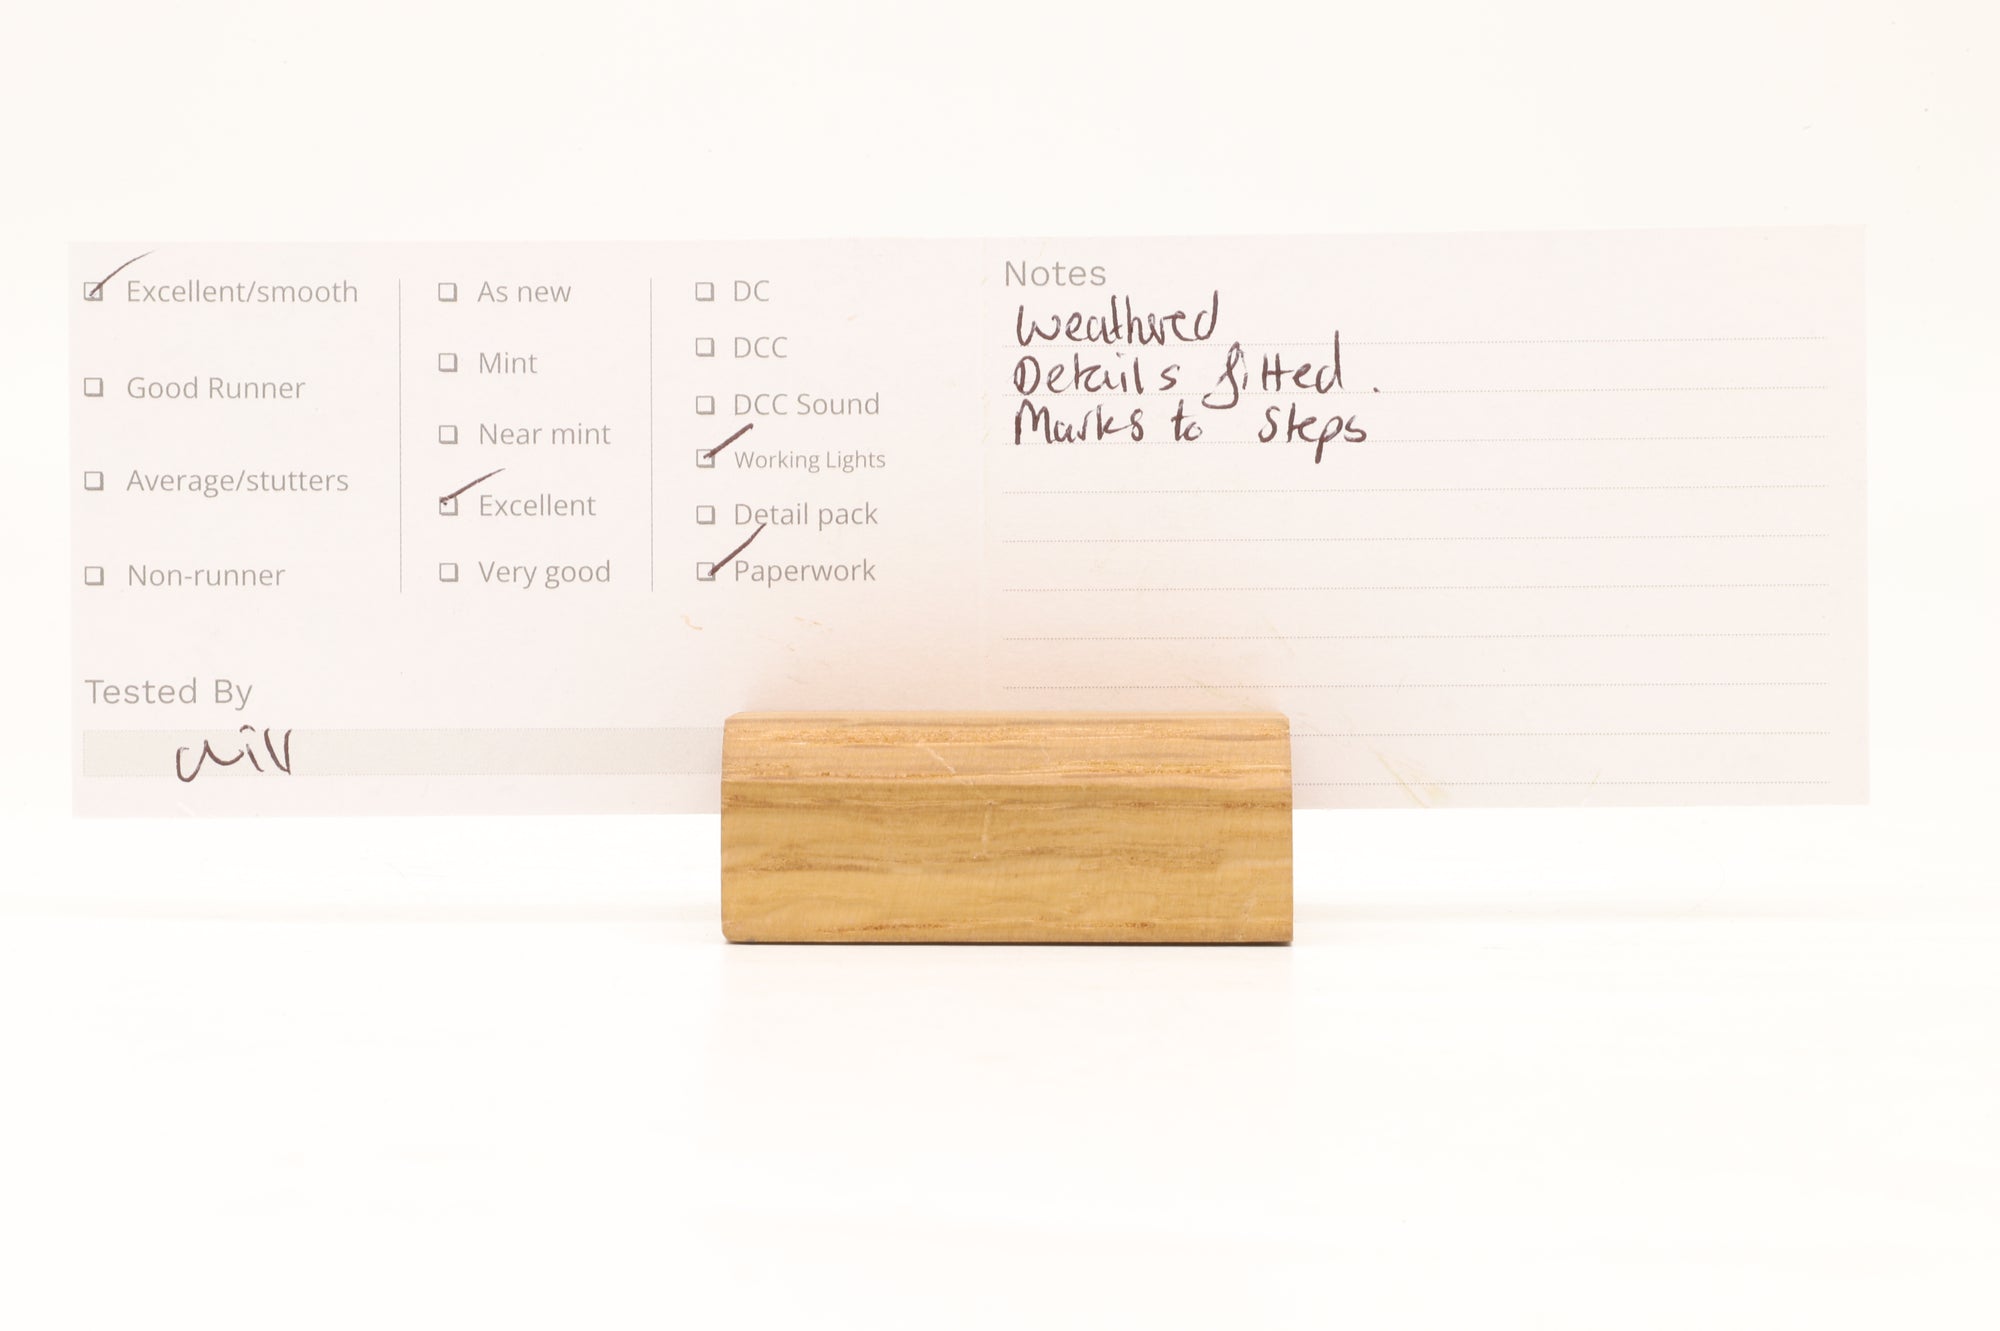 Excellent/smooth
Good Runner
Average/stutters
Non-runner
As new
Mint
Near mint
Excellent
Very good
DC
DCC
DCC Sound
Working Lights
Detail pack
Paperwork
Tested By
Notes
Weathered
Details fitted.
Marks to steps